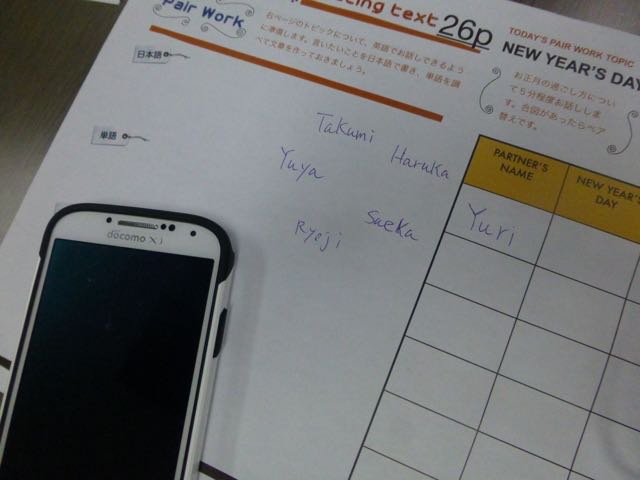 Pair Work
ting text 26p
右ページのトピックについて、英語でお話しできるよう
に準備します。言いたいことを日本語で書き、単語を調
べて文章を作っておきましょう。
日本語
単語
TODAY'S PAIR WORK TOPIC
NEW YEAR'S DAY
お正月の過ごし方につい
て5分程度お話ししま
す。合図があったらペア
替えです。
Takumi
Haruka
Yuya
Saeka
Ryoji
PARTNER'S
NAME
NEW YEAR'S
DAY
Yuri
döcomo Xi